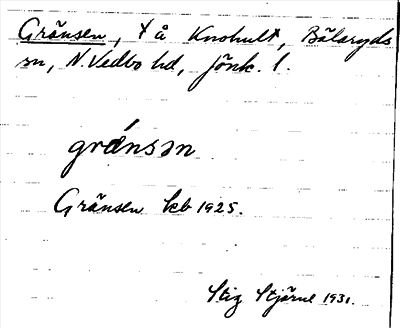 Gränsen, t å Knohult, Bälaryds
sn, N. Vedbo hd, Jönk. l.
grǽnsən
Gränsen kb 1925.
Stig Stjärne 1931.